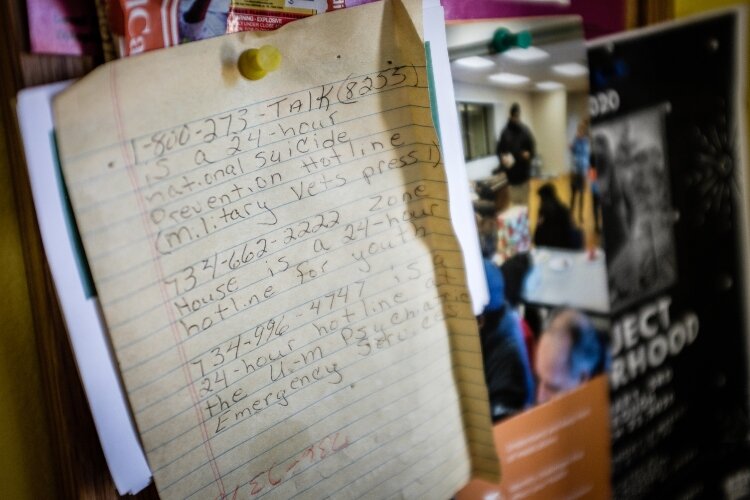 WARNING - EXPLOSIVE
1-800-273-TALK (8255)
is a 24-hour
national suicide
prevention Hotline
(military vets press 1)
734-662-2222 Zone
House is a 24-hour
hotline for youth
734-996-4747 is a
24-hour hotline at
the U-M Psychiatric
Emergency Services.
020
JECT
RHOOD